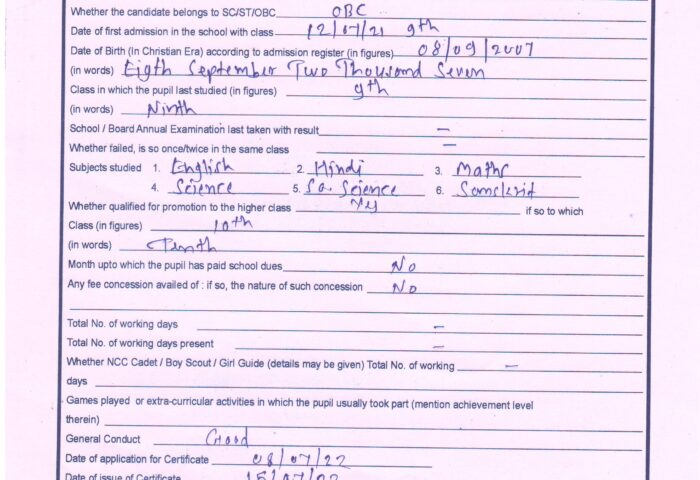 Whether the candidate belongs to SC/ST/OBC OBC
Date of first admission in the school with class 12/07/21 9th
Date of Birth (In Christian Era) according to admission register (in figures) 08/09/2007
(in words) Eigth September Two Thousand Seven
Class in which the pupil last studied (in figures) 9th
(in words) Ninth
School / Board Annual Examination last taken with result –
Whether failed, is so once/twice in the same class –
Subjects studied 1. English 2. Hindi 3. Maths
4. Science 5. So. Science 6. Samskrit
Whether qualified for promotion to the higher class Yes if so to which
Class (in figures) 10th
(in words) Tenth
Month upto which the pupil has paid school dues No
Any fee concession availed of : if so, the nature of such concession No
Total No. of working days –
Total No. of working days present –
Whether NCC Cadet / Boy Scout / Girl Guide (details may be given) Total No. of working –
days
Games played or extra-curricular activities in which the pupil usually took part (mention achievement level
therein)
General Conduct Good
Date of application for Certificate 08/07/22
Date of issue of Certificate 15/07/22